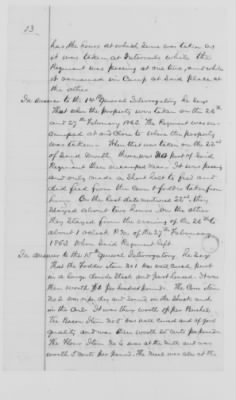 13.
has the hours at which same was taken as
it was taken at Intervals while the
Regiment was passing at one time, and while
it remained in Camp at said place at
the other
In Answer to the 14th General Interrogatory he says
That when the property was taken on the 26th
and 27th February 1862. The Regiment was en-
camped at and close to where the property
was taken. When that was taken on the 22nd
of said Month, However part of said
Regiment then encamped near. It was passing
and only made a short halt to feed and
did feed from the Corn & fodder taken from
him. On the last date mentioned 22nd, they
stayed about two hours. On the other
they stayed from the evening of the 26th to
about 1 o'clock P.M. of the 27th February
1862. When said Regiment left.
In Answer to the 15th General Interrogatory. he says
That the fodder Item No 1 was well cured, put
in large bundles and housed. It was
then worth per hundred pounds. The Corn Item
No 2 was ripe dry and sound on the shuck and
in the crib. It was then worth per Bushel.
The Bacon Item No 3 was well cured and of good
quality and was then worth 25 cents per pound.
The Flour Item No 4 was at the Mill and was
worth 5 cents per pound. The Meal was also at the